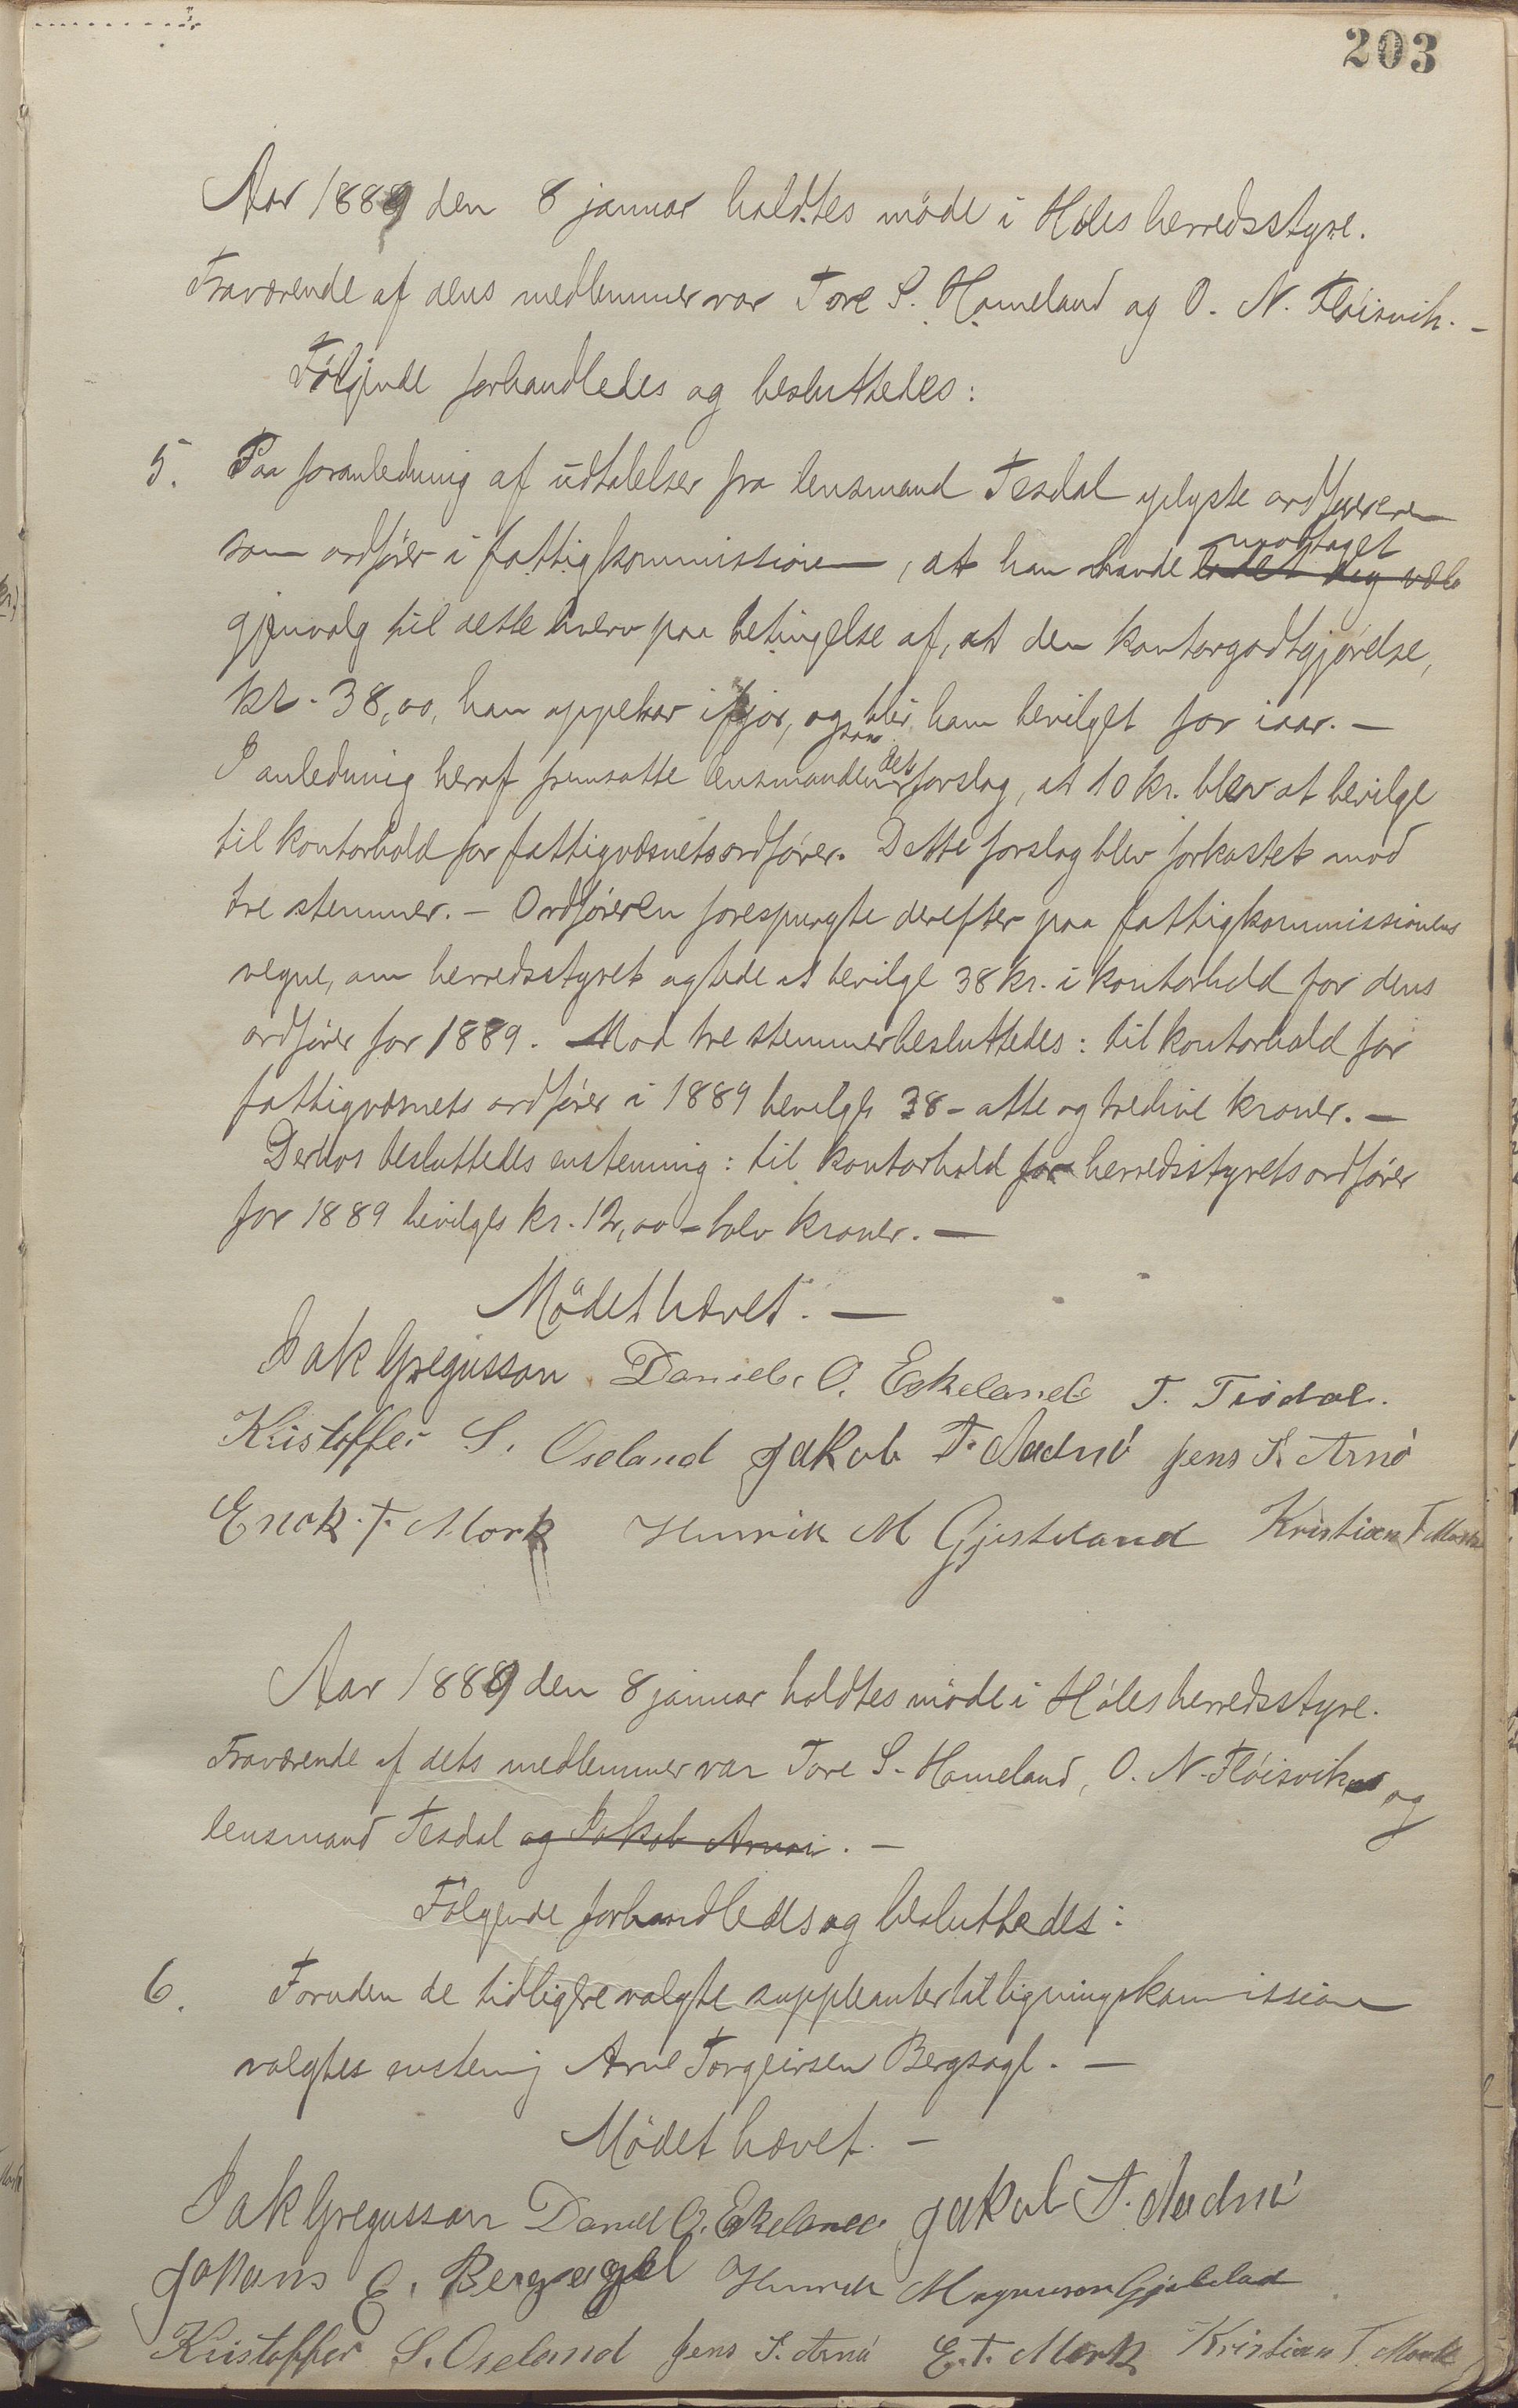 203
Aar 1889 den 8 januar holdtes möde i Höles herredsstyre.
Fraværende af dens medlemmer var Tore S. Hameland og O. N. Flöisvik. –
Følgende forhandledes og besluttedes:
5. Paa foranledning af udtalelser fra lensmand Tesdal oplyste ordføreren
som ordfører i fattigkommissionen, at han havde modtaget
gjenvalg til dette hverv paa betingelse af, at den kontorgodtgjørelse,
kr. 38,00, han oppebar ifjor, ogsaa blir ham bevilget for iaar. –
I anledning heraf fremsatte lensmanden det forslag, at 10 kr. blev at bevilge
til kontorhold for fattigvæsnets ordfører. Dette forslag blev forkastet mod
tre stemmer. – Ordføreren forespurgte derefter paa fattigkommissionens
vegne, om herredsstyret agtede at bevilge 38 kr. i kontorhold for dens
ordfører for 1889. Mod tre stemmer besluttedes: til kontorhold for
fattigvæsnets ordfører i 1889 bevilges 38 – otte og tredive kroner. –
Derhos besluttedes enstemmig: til kontorhold for herredsstyrets ordfører
for 1889 bevilges kr. 12,00 – tolv kroner. –
Mödet hævet. –
Jak Gregusson Daniel O. Eskeland T. Tesdal.
Kristoffer S. Oseland Jakob T. Aadnö Jens S. Arnö
Erick T. Mork Henrik M Gjesteland Kristian T Mork
Aar 1889 den 8 januar holdtes möde i Höles herredsstyre.
Fraværende af dets medlemmer var Tore S. Hameland, O. N. Flöisvik og
lensmand Tesdal og Jakob . –
Følgende forhandledes og besluttedes:
6. Foruden de tidligere valgte suppleanter til ligningskommission
valgtes enstemig Arne Torgeirsen Bergsagl. –
Mödet hævet. –
Jak Gregusson Daniel O. Eskeland Jakob T. Aadnö
Johans E. Bergsagel Henrik Magnuson Gjesteland
Kristoffer S. Oseland Jens S. Arnö E. T. Mork Kristian T. Mork